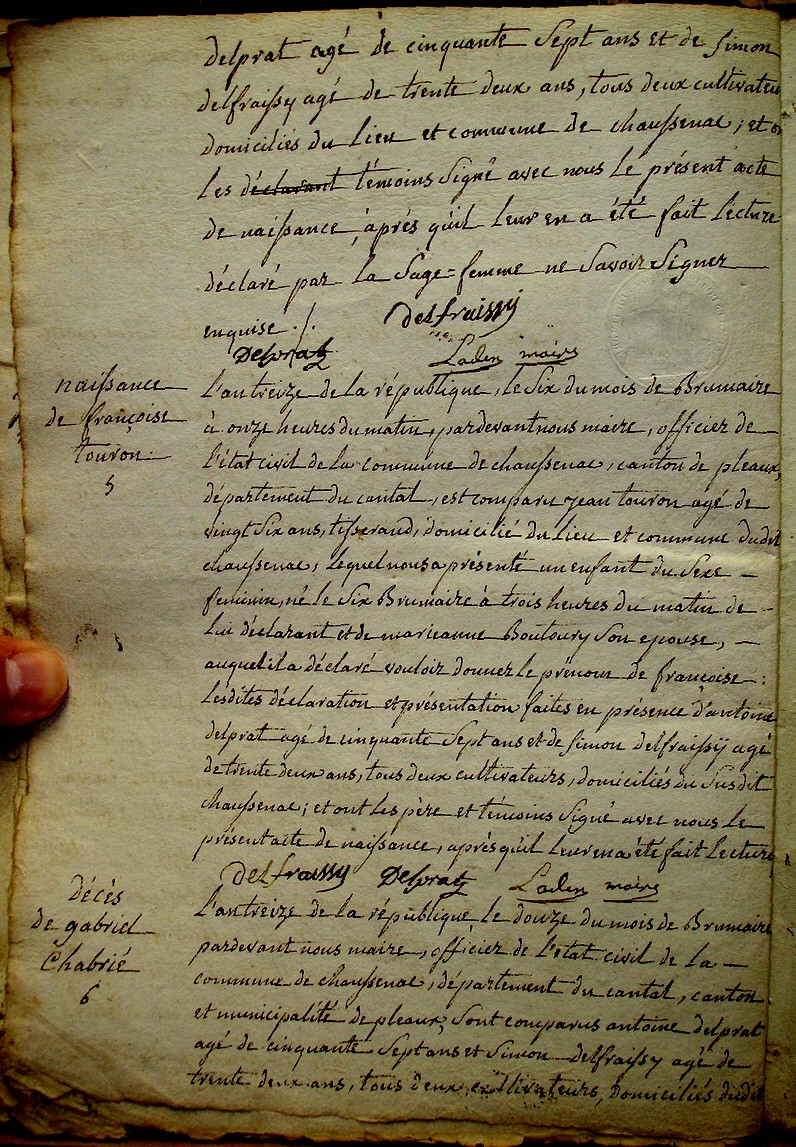 delprat agé de cinquante Sept ans et de Simon
delfraissy agé de trente deux ans, tous deux cultivateu
domiciliés du Lieu et commune de chaussenac; et o
les déclarant témoins Signé avec nous Le présent acte
de naissance, aprés qu'il leur en a été fait Lecture
déclaré par la Sage=femme ne Savoir Signer
enquise ./.
delfraissy
Delprat
Laden maire
naissance
de françoise
touron
5
L'an treize de la république, le Six du mois de Brumaire
à onze heures du matin, pardevant nous maire, officier de
l'état civil de la commune de chaussenac, canton de pleaux,
département du cantal, est comparu jean touron agé de
vingt Six ans, tisserand, domicilié du Lieu et commune dudit
chaussenac, Lequel nous a présenté un enfant du Sexe
feminin, né le Six Brumaire à trois heures du matin de
Lui déclarant et de marieanne Boutoury Son epouse,
auquel il a déclaré vouloir donner le prénom de françoise:
Lesdites déclaration et présentation faites en présence d'antoine
delprat agé de cinquante Sept ans et de Simon delfraissy agé
de trente deux ans, tous deux cultivateurs, domiciliés du Susdit
chaussenac; et ont Les père et témoins Signé avec nous Le
présent acte de naissance, aprés qu'il leur en a été fait Lecture
delfraissy Delprat Laden maire
décès
de gabriel
Chabrié
6
L'an treize de la république le douze du mois de Brumaire
pardevant nous maire, officier de l'état civil de la
commune de chaussenac, département du cantal, canton
et municipalité de pleaux, Sont comparus antoine delprat
agé de cinquante Sept ans et Simon delfraissy agé de
trente deux ans, tous deux cultivateurs, domiciliés dudit